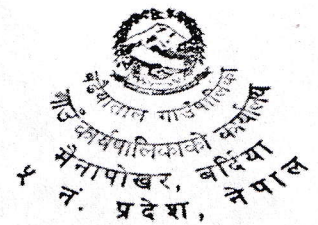 बढैयाताल गाउँपालिका
गाउँ कार्यपालिकाको कार्यालय
मैनापोखर, बर्दिया
५ नं. प्रदेश, नेपाल